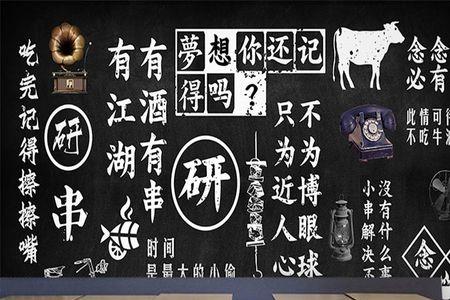 吃完记得擦擦嘴
研
串
有酒有串
有江湖
夢想你还记
得吗？
研
时间
是最大的小偷
不为博眼球
只为近人心
念念
必有
此情可
不吃牛
沒有什么
小串解决不
念